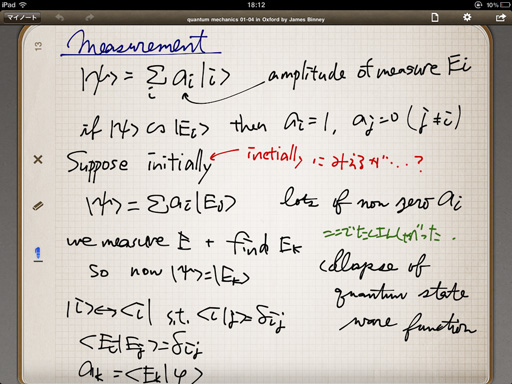 iPad 18:12 10%
マイノート quantum mechanics 01-04 in Oxford by James Binney
13
Measurement
|ψ> = Σ_i a_i |i> amplitude of measure E_i
if |ψ> is |E_i> then a_i = 1, a_j = 0 (j ≠ i)
Suppose initially ← inetially にみえるが…?
|ψ> = Σ a_i |E_i> lots of non zero a_i
we measure E + find E_k
So now |ψ> = |E_k> collapse of
quantum state
wave function
|i> ↔ <i| s.t. <i|j> = δ_ij
<E_i|E_j> = δ_ij
a_k = <E_k|ψ>